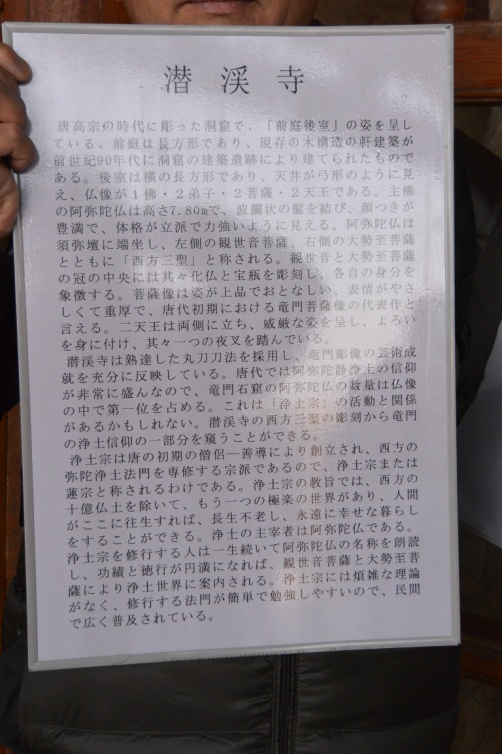 潜渓寺
唐高宗の時代に彫った洞窟で、「前庭後室」の姿を呈し
ている。前庭は長方形であり、現存の木構造の軒建築が
前世紀90年代に洞窟の建築遺跡により建てられたもので
ある。後室は横の長方形であり、天井が弓形のように見
え、仏像が１佛・２弟子・２菩薩・２天王である。主佛
の阿弥陀仏は高さ7.80mで、波瀾状の髷を結び、顔つきが
豊満で、体格が立派で力強いように見える。阿弥陀仏は
須弥壇に端坐し、左側の観世音菩薩、右側の大勢至菩薩
とともに「西方三聖」と称される。観世音と大勢至菩薩
の冠の中央には其々化仏と宝瓶を彫刻し、各自の身分を
象徴する。菩薩像は姿が上品でおとなしい、表情がやさ
しくて重厚で、唐代初期における竜門菩薩像の代表作と
言える。二天王は両側に立ち、威厳な姿を呈し、よろい
を身に付け、其々一つの夜叉を踏んでいる。
潜渓寺は熟達した丸刀刀法を採用し、竜門彫像の芸術成
就を充分に反映している。唐代では阿弥陀静浄土の信仰
が非常に盛んなので、竜門石窟の阿弥陀仏の数量は仏像
の中で第一位を占める。これは「浄土宗」の活動と関係
があるかもしれない。潜渓寺の西方三聖の彫刻から竜門
の浄土信仰の一部分を窺うことができる。
浄土宗は唐の初期の僧侶―善導により創立され、西方の
弥陀浄土法門を専修する宗派であるので、浄土宗または
蓮宗と称されるわけである。浄土宗の教旨では、西方の
十億仏土を除いて、もう一つの極楽の世界があり、人間
がここに往生すれば、長生不老し、永遠に幸せな暮らし
をすることができる。浄土の主宰者は阿弥陀仏である。
浄土宗を修行する人は一生続いて阿弥陀仏の名称を朗読
し、功績と徳行が円満になれば、観世音菩薩と大勢至菩
薩により浄土世界に案内される。浄土宗には煩雑な理論
がなく、修行する法門が簡単で勉強しやすいので、民間
で広く普及されている。